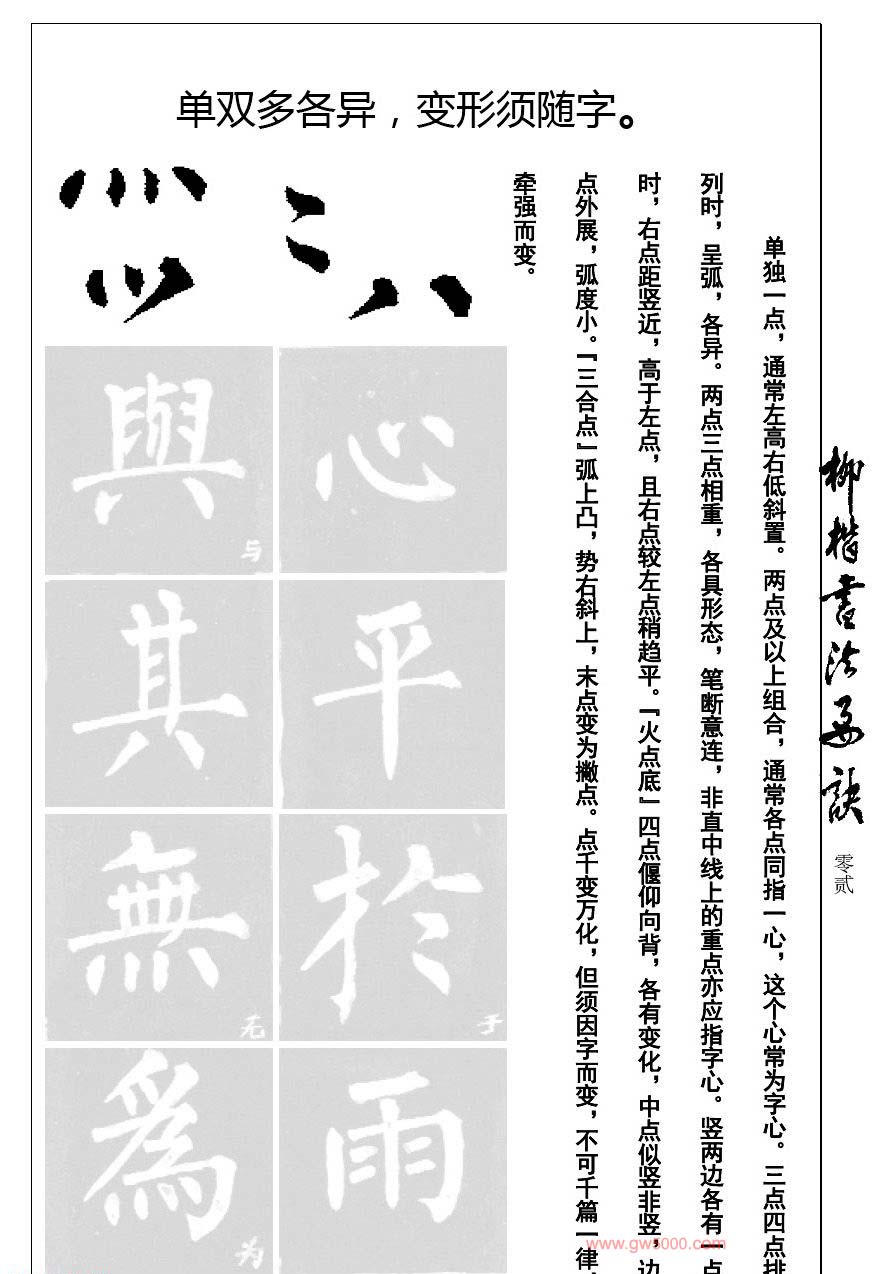 单双多各异，变形须随字。
单独一点，通常左高右低斜置。两点及以上组合，通常各点同指一心，这个心常为字心。三点四点排
列时，呈弧，各异。两点三点相重，各具形态，笔断意连，非直中线上的重点亦应指字心。竖两边各有一点
时，右点距竖近，高于左点，且右点较左点稍趋平。『火点底』四点偃仰向背，各有变化，中点似竖非竖，边
点外展，弧度小。『三合点』弧上凸，势右斜上，末点变为撇点。点千变万化，但须因字而变，不可千篇一律，
牵强而变。
心
與
与
平
其
於
于
無
无
雨
爲
为
柳楷书法要诀
零贰
www.gw5000.com